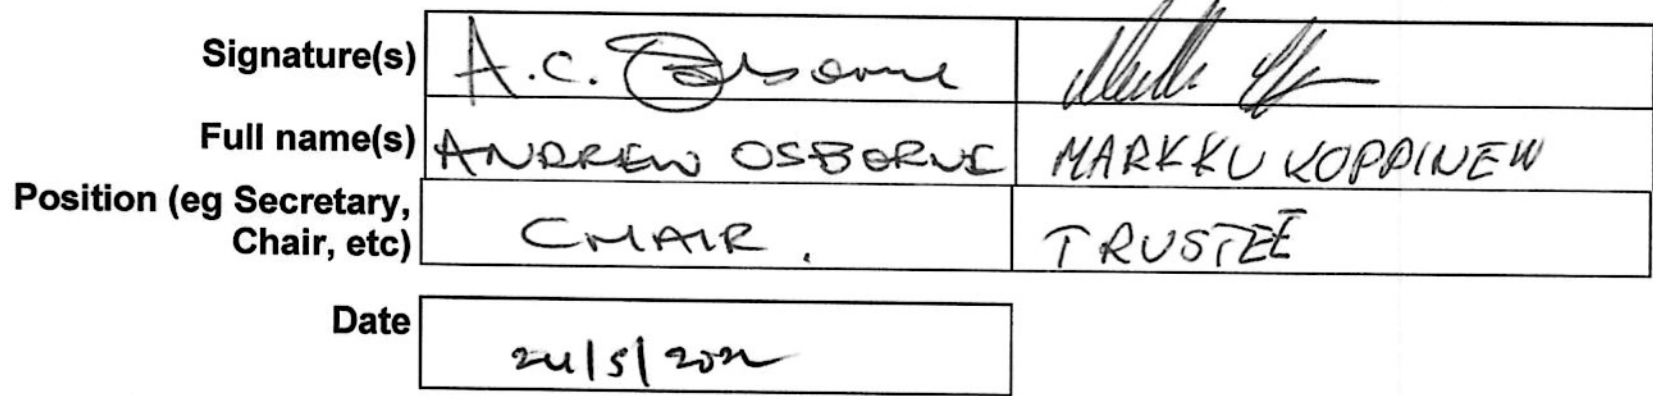 Signature(s) A.C. Osborne
Full name(s) ANDREW OSBORNE MARKKU KOPPINEN
Position (eg Secretary,
Chair, etc) CHAIR. TRUSTEE
Date 24/5/2022